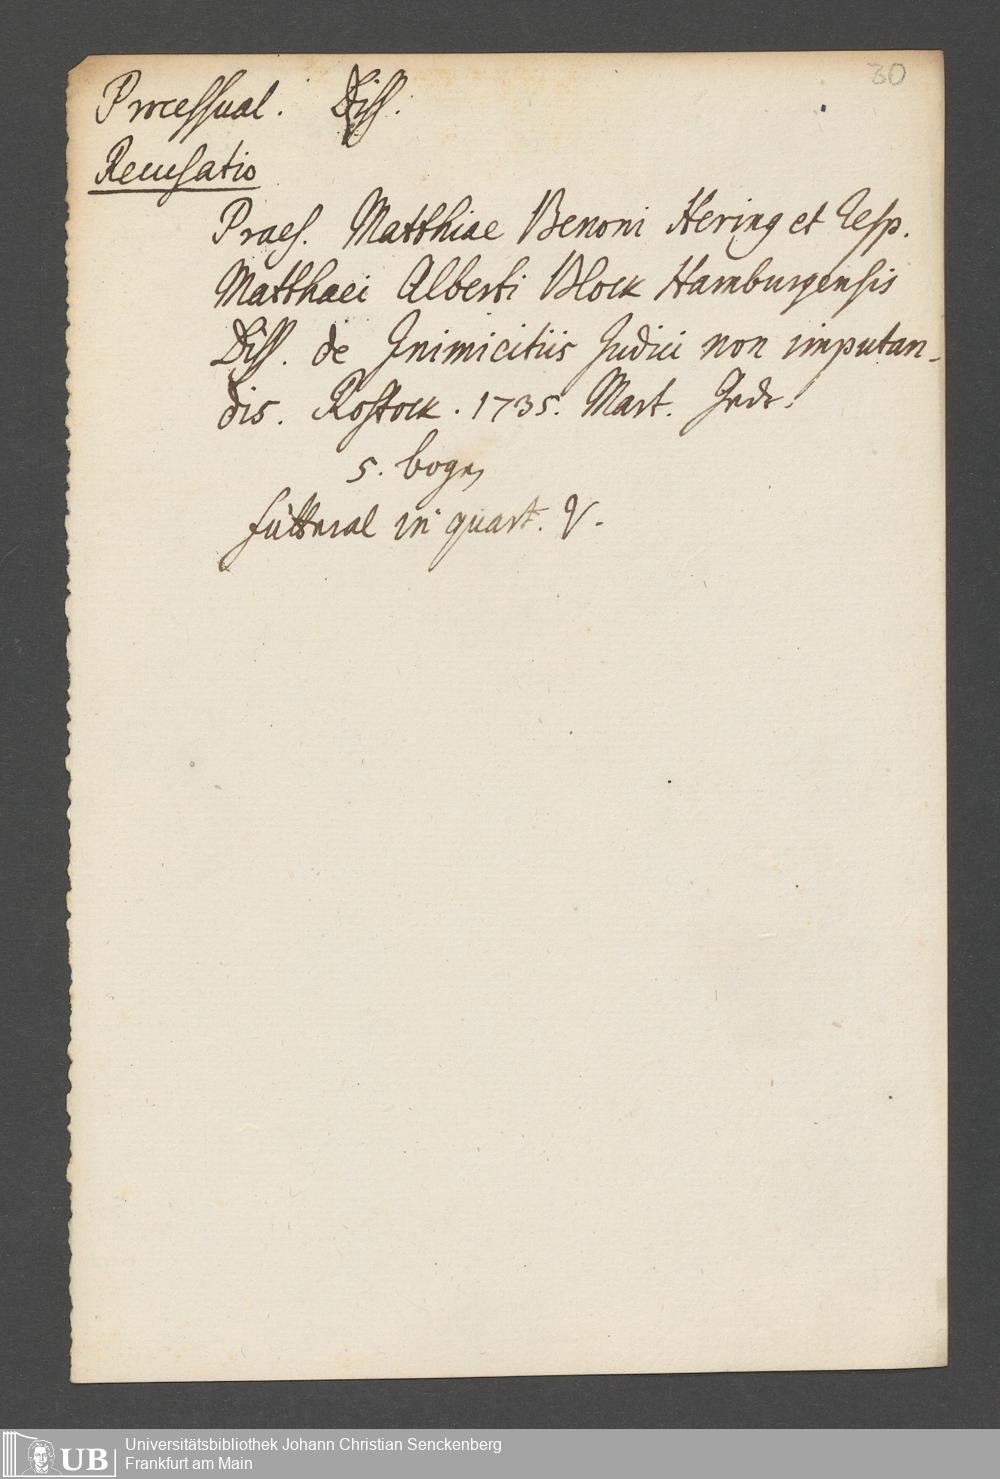 30
Processual. Diss.
Recusatio
Praes. Matthiae Benoni Hering et Resp.
Matthaei Alberti Block Hamburgensis
Diss. de Inimicitiis Judici non imputan-
dis. Rostock. 1735. Mart.
5. bogen
futteral in quart. V.
UB
Universitätsbibliothek Johann Christian Senckenberg
Frankfurt am Main